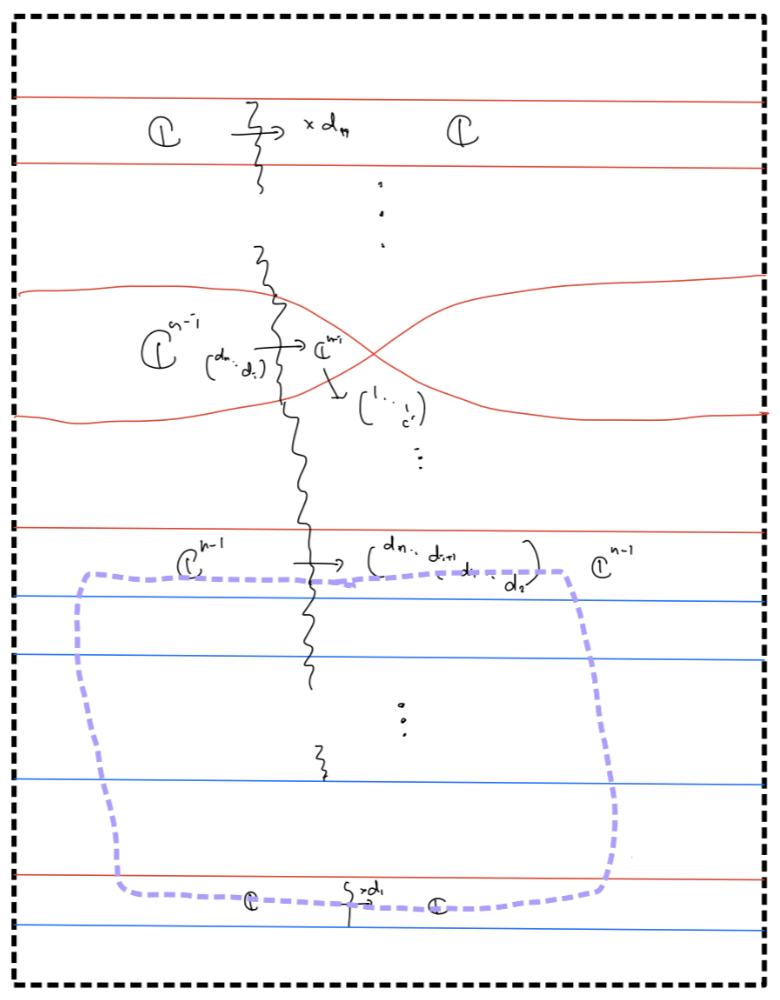 ℂ → × dₙ ℂ
⋮
ℂⁿ⁻¹ → ℂⁿ⁻¹
(dₙ ⋱ dᵢ)
(1 ⋱ 1
⋮
ℂⁿ⁻¹ → (dₙ ⋱ dᵢ₊₁ dᵢ ⋱ d₂) ℂⁿ⁻¹
⋮
ℂ → ×d₁ ℂ